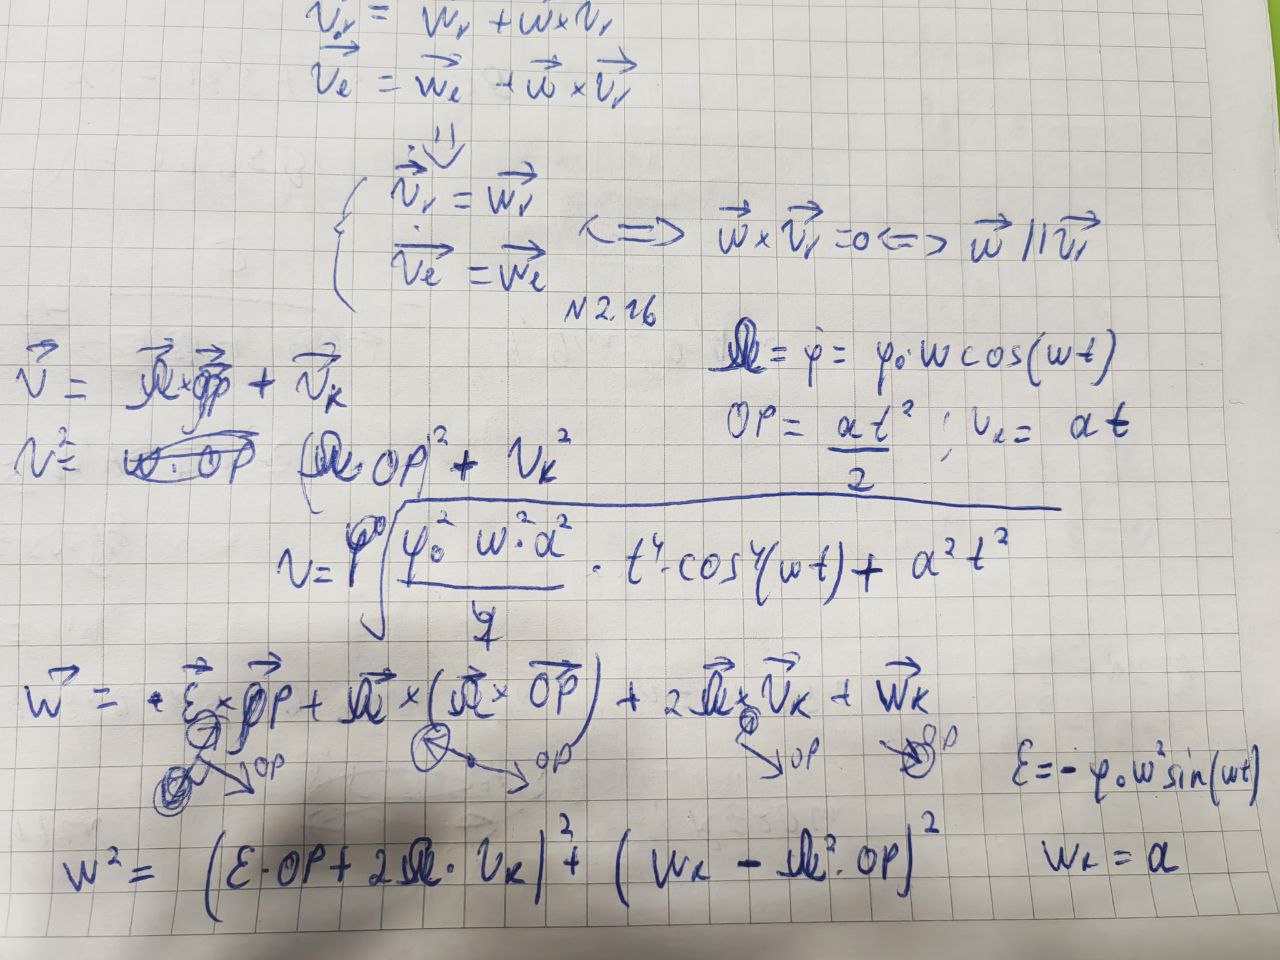 v̇ᵣ = wᵣ + w×vᵣ
v⃗ₑ = w⃗ₑ + w⃗ × v⃗ᵣ
⇓
{ v̇⃗ᵣ = w⃗ᵣ
v̇⃗ₑ = w⃗ₑ <=> w⃗ × v⃗ᵣ = 0 <=> w⃗ || v⃗ᵣ
N 2.26
v⃗ = Ω⃗ × OP⃗ + v⃗ₖ
Ω = φ̇ = φ₀·w cos(wt)
OP = at²/2 ; vₖ = at
v² = (Ω·OP)² + vₖ²
v = √(φ₀² w²·a²/4 · t⁴·cos⁴(wt) + a²t²)
w⃗ = ε⃗ × OP⃗ + Ω⃗ × (Ω⃗ × OP⃗) + 2Ω⃗ × v⃗ₖ + w⃗ₖ
OP OP OP OP
ε = -φ₀w² sin(wt)
w² = (ε·OP + 2Ω·vₖ)² + (wₖ - Ω²·OP)²
wₖ = a